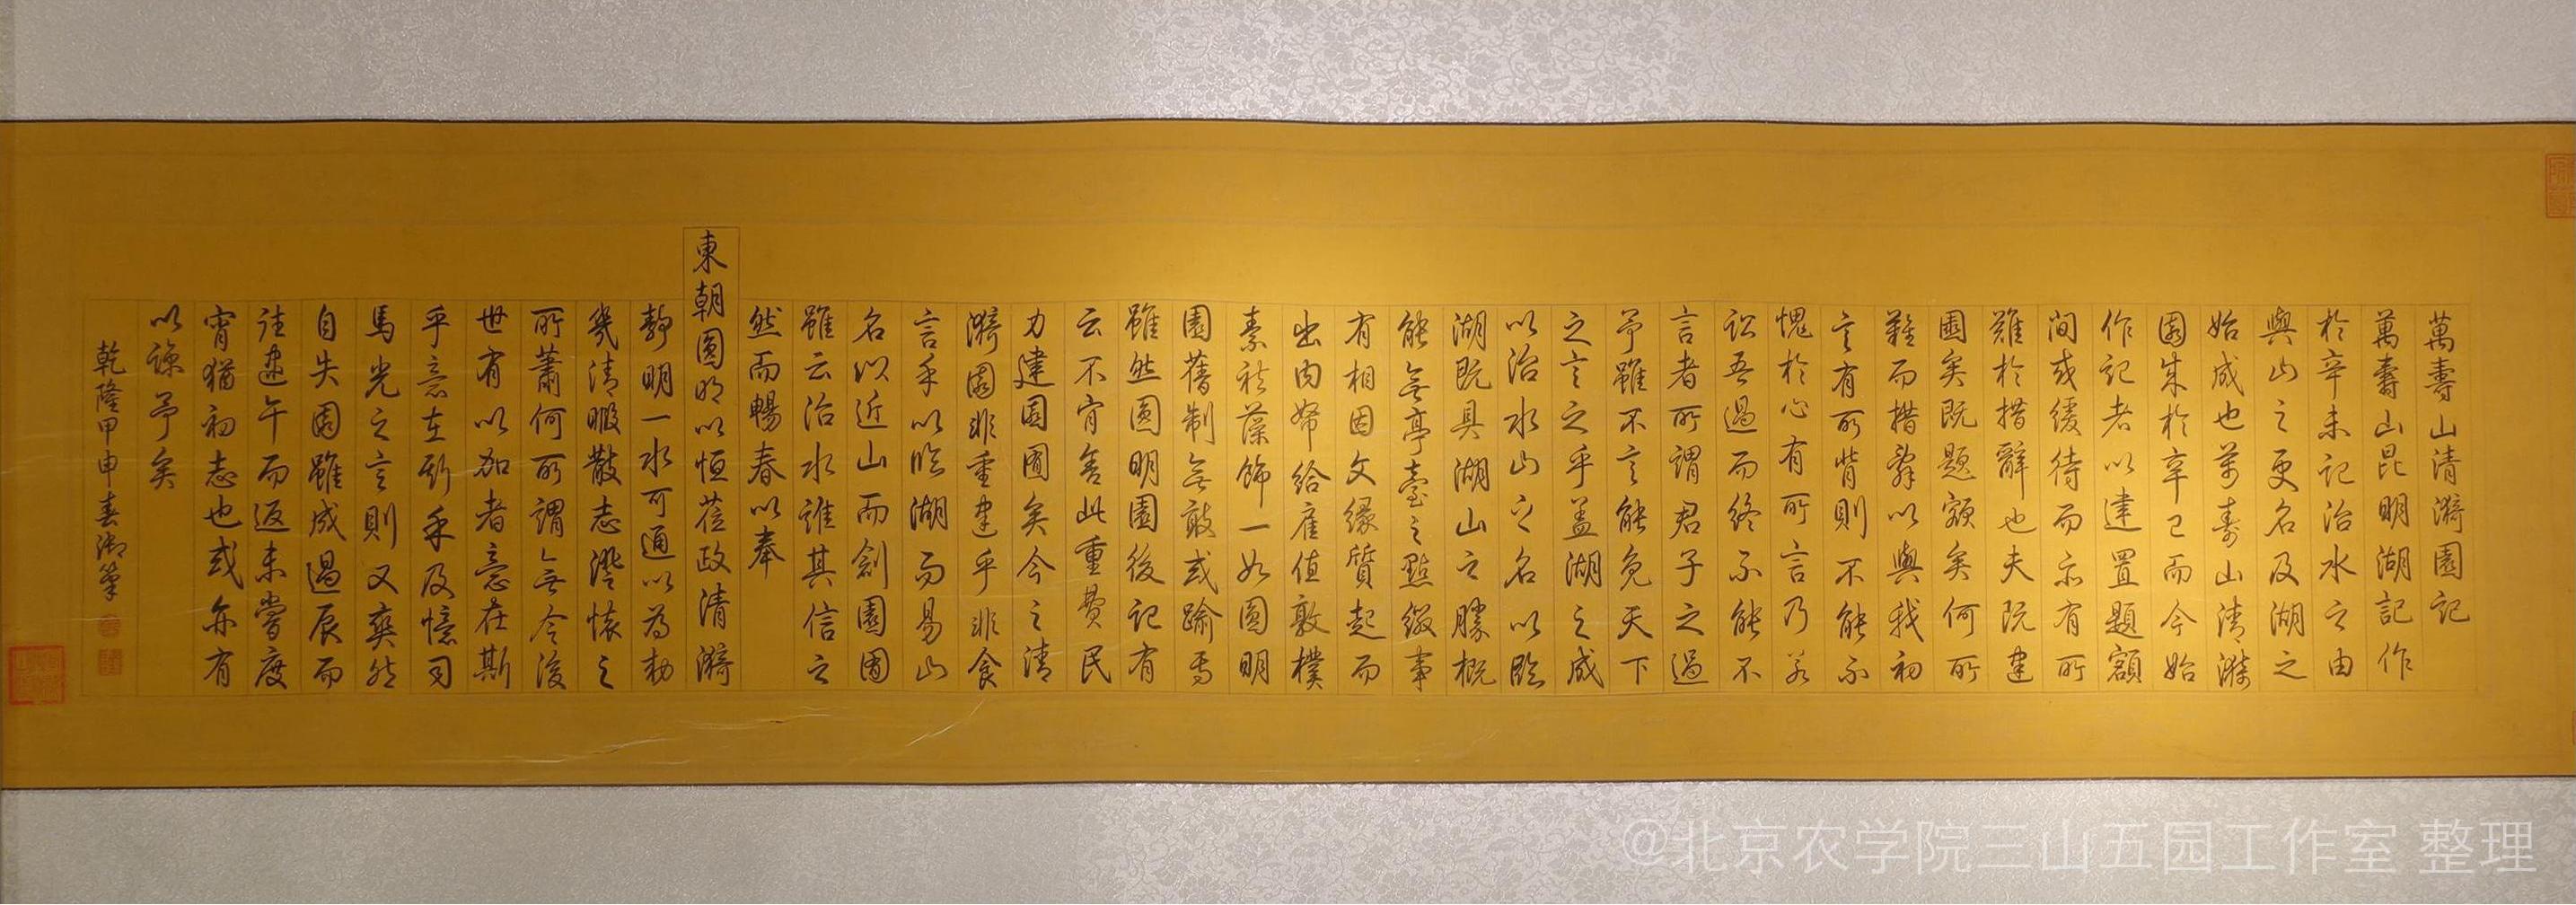 萬壽山清漪園記
萬壽山昆明湖記作
於辛未記治水之由
與山之更名及湖之
始成也萬壽山清漪
園成於辛巳而今始
作記者以建置題額
間或緩待而亦有所
難於措辭也夫既建
園矣既題額矣何所
難而措辭以與我初
言有所背則不能不
愧於心有所言乃若
訟吾過而終不能不
言者所謂君子之過
予雖不言能免天下
之言之乎蓋湖之成
以治水山之名以臨
湖既具湖山之勝概
能無亭臺之點綴事
有相因文緣質起而
出內帑給雇值敦樸
素祛藻飾一如圓明
園舊制無敢或踰焉
雖然圓明園後記有
云不肯舍此重費民
力建園囿矣今之清
漪園非重建乎非食
言乎以臨湖而易山
名以近山而創園囿
雖云治水誰其信之
然而暢春以奉
東朝圓明以恒蒞政清漪
靜明一水可通以為勅
幾清暇散志澄懷之
所蕭何所謂無令後
世有以加者意在斯
乎意在斯乎及憶司
馬光之言則又爽然
自失園雖成過辰而
往逮午而返未嘗度
宵猶初志也或亦有
以諒予矣
乾隆甲申春御筆
@北京农学院三山五园工作室 整理